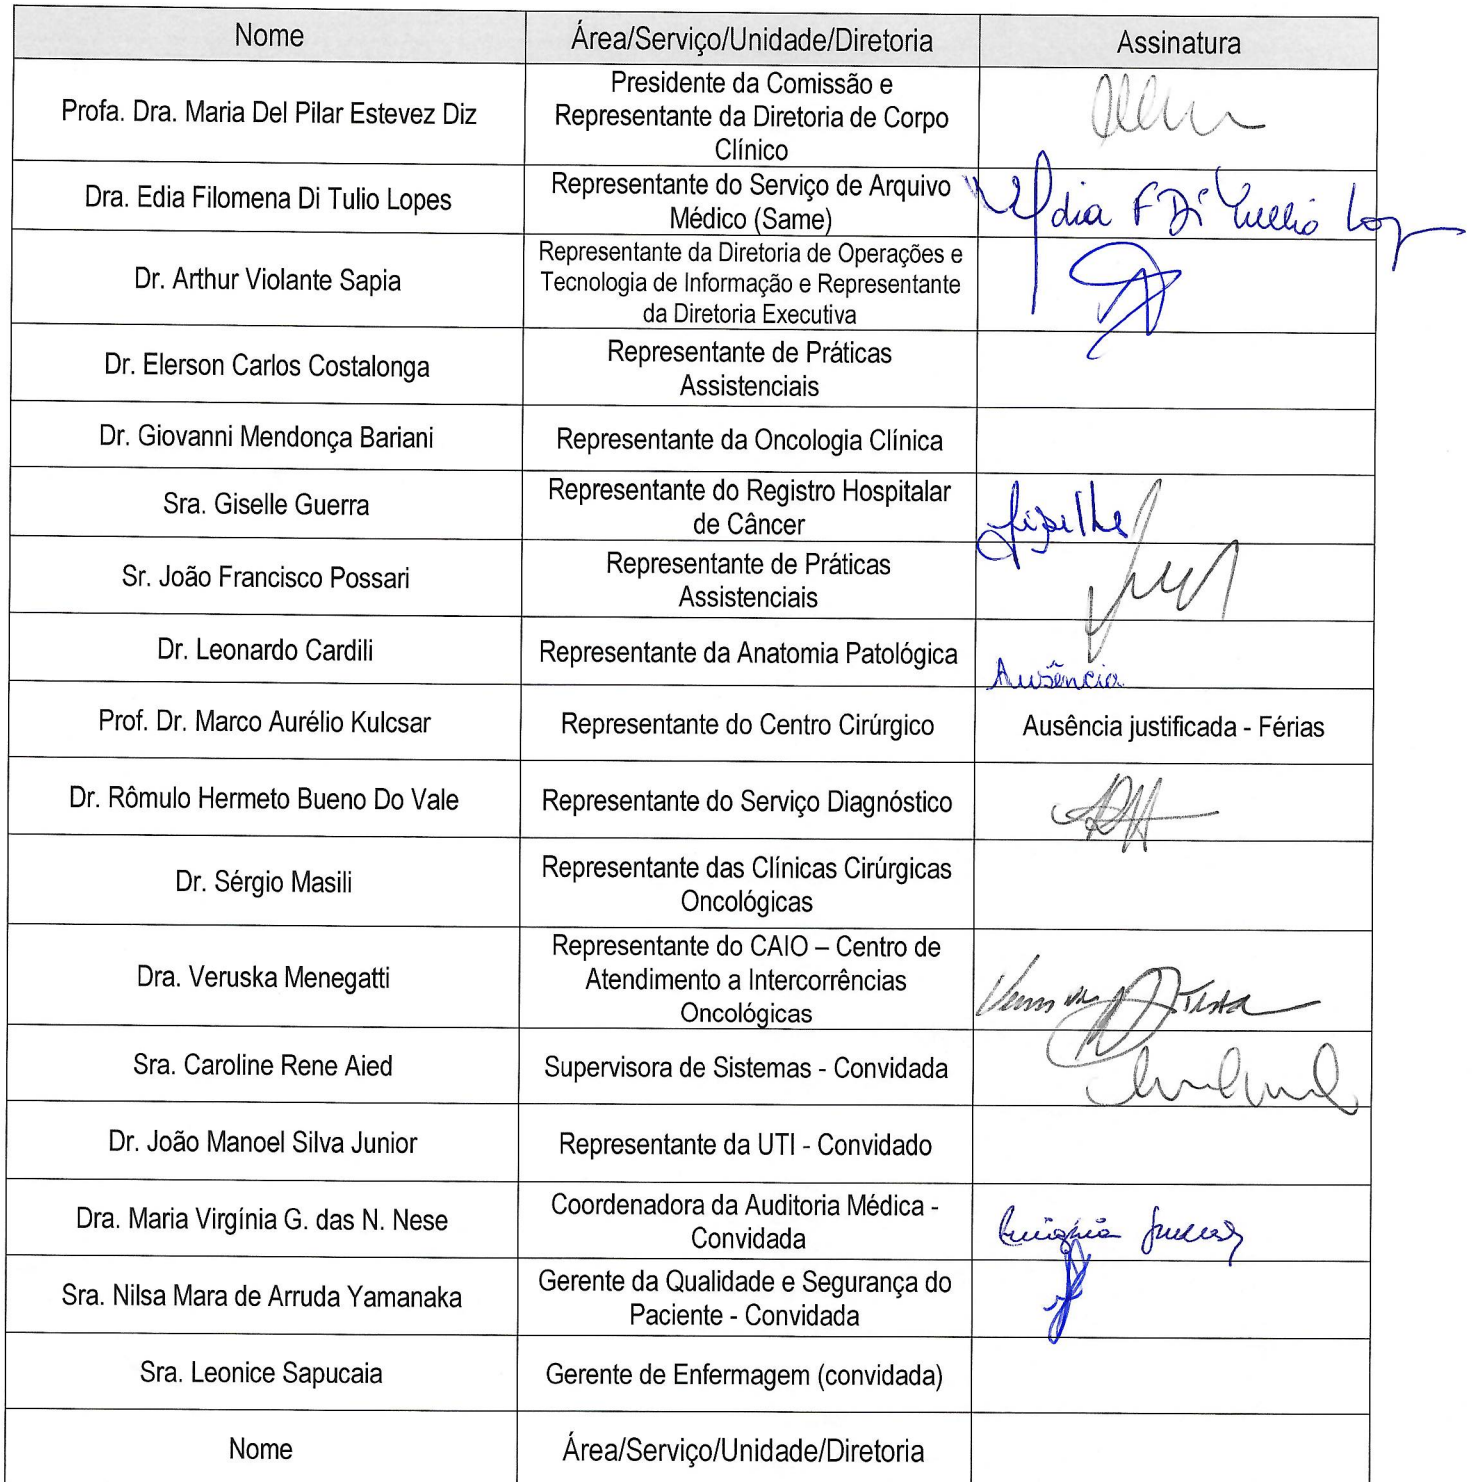 Nome
Área/Serviço/Unidade/Diretoria
Assinatura
Profa. Dra. Maria Del Pilar Estevez Diz
Presidente da Comissão e
Representante da Diretoria de Corpo
Clínico
Dra. Edia Filomena Di Tulio Lopes
Representante do Serviço de Arquivo
Médico (Same)
Edia F Di Tullio Lop
Dr. Arthur Violante Sapia
Representante da Diretoria de Operações e
Tecnologia de Informação e Representante
da Diretoria Executiva
Dr. Elerson Carlos Costalonga
Representante de Práticas
Assistenciais
Dr. Giovanni Mendonça Bariani
Representante da Oncologia Clínica
Sra. Giselle Guerra
Representante do Registro Hospitalar
de Câncer
Sr. João Francisco Possari
Representante de Práticas
Assistenciais
Dr. Leonardo Cardili
Representante da Anatomia Patológica
Ausência
Prof. Dr. Marco Aurélio Kulcsar
Representante do Centro Cirúrgico
Ausência justificada - Férias
Dr. Rômulo Hermeto Bueno Do Vale
Representante do Serviço Diagnóstico
Dr. Sérgio Masili
Representante das Clínicas Cirúrgicas
Oncológicas
Dra. Veruska Menegatti
Representante do CAIO – Centro de
Atendimento a Intercorrências
Oncológicas
Sra. Caroline Rene Aied
Supervisora de Sistemas - Convidada
Dr. João Manoel Silva Junior
Representante da UTI - Convidado
Dra. Maria Virgínia G. das N. Nese
Coordenadora da Auditoria Médica -
Convidada
Sra. Nilsa Mara de Arruda Yamanaka
Gerente da Qualidade e Segurança do
Paciente - Convidada
Sra. Leonice Sapucaia
Gerente de Enfermagem (convidada)
Nome
Área/Serviço/Unidade/Diretoria